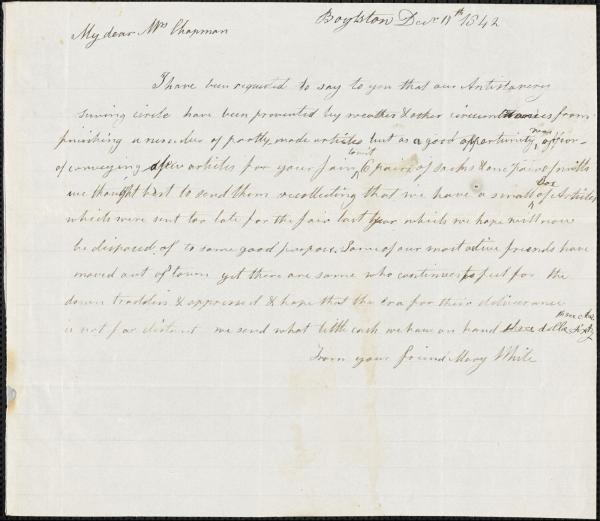 Boylston Decr 11th 1842
My dear Mrs Chapman
I have been requested to say to you that our Antislavery
sewing circle have been prevented by weather & other circumstances from
finishing a number of partly made articles but as a good oppertunity now offers
of conveying a few articles for your fair towit 6 pairs of socks & one pair of mitts
we thought best to send them recollecting that we have a small Box of Articles
which were sent too late for the fair last year which we hope will now
be disposed of to some good purpose. Some of our most active friends have
moved out of town yet there are some who continue to feel for the
down trodden & oppressed & hope that the era for their deliverance
is not far distant we send what little cash we have on hand three dolls
From your friend Mary White